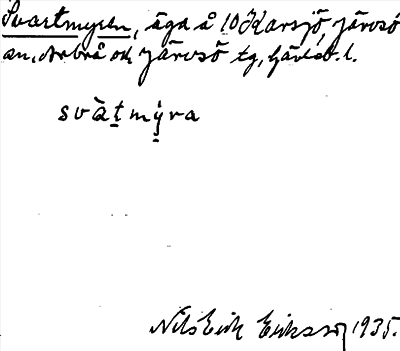 Svartmyren, äga å 10 Karsjö, Järvsö
sn, Arbrå och Järvsö tg, Gävleb. l.
svàt̠mý̠ra
Nils Erik Eriksson 1935.